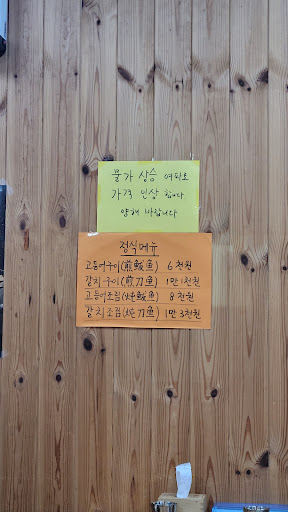 물가 상승 여파로
가격 인상 합니다
양해 바랍니다
정식메뉴
고등어구이(煎鲅鱼) 6천원
갈치구이(煎刀鱼) 1만1천원
고등어조림(炖鲅鱼) 8천원
갈치조림(炖刀鱼) 1만3천원